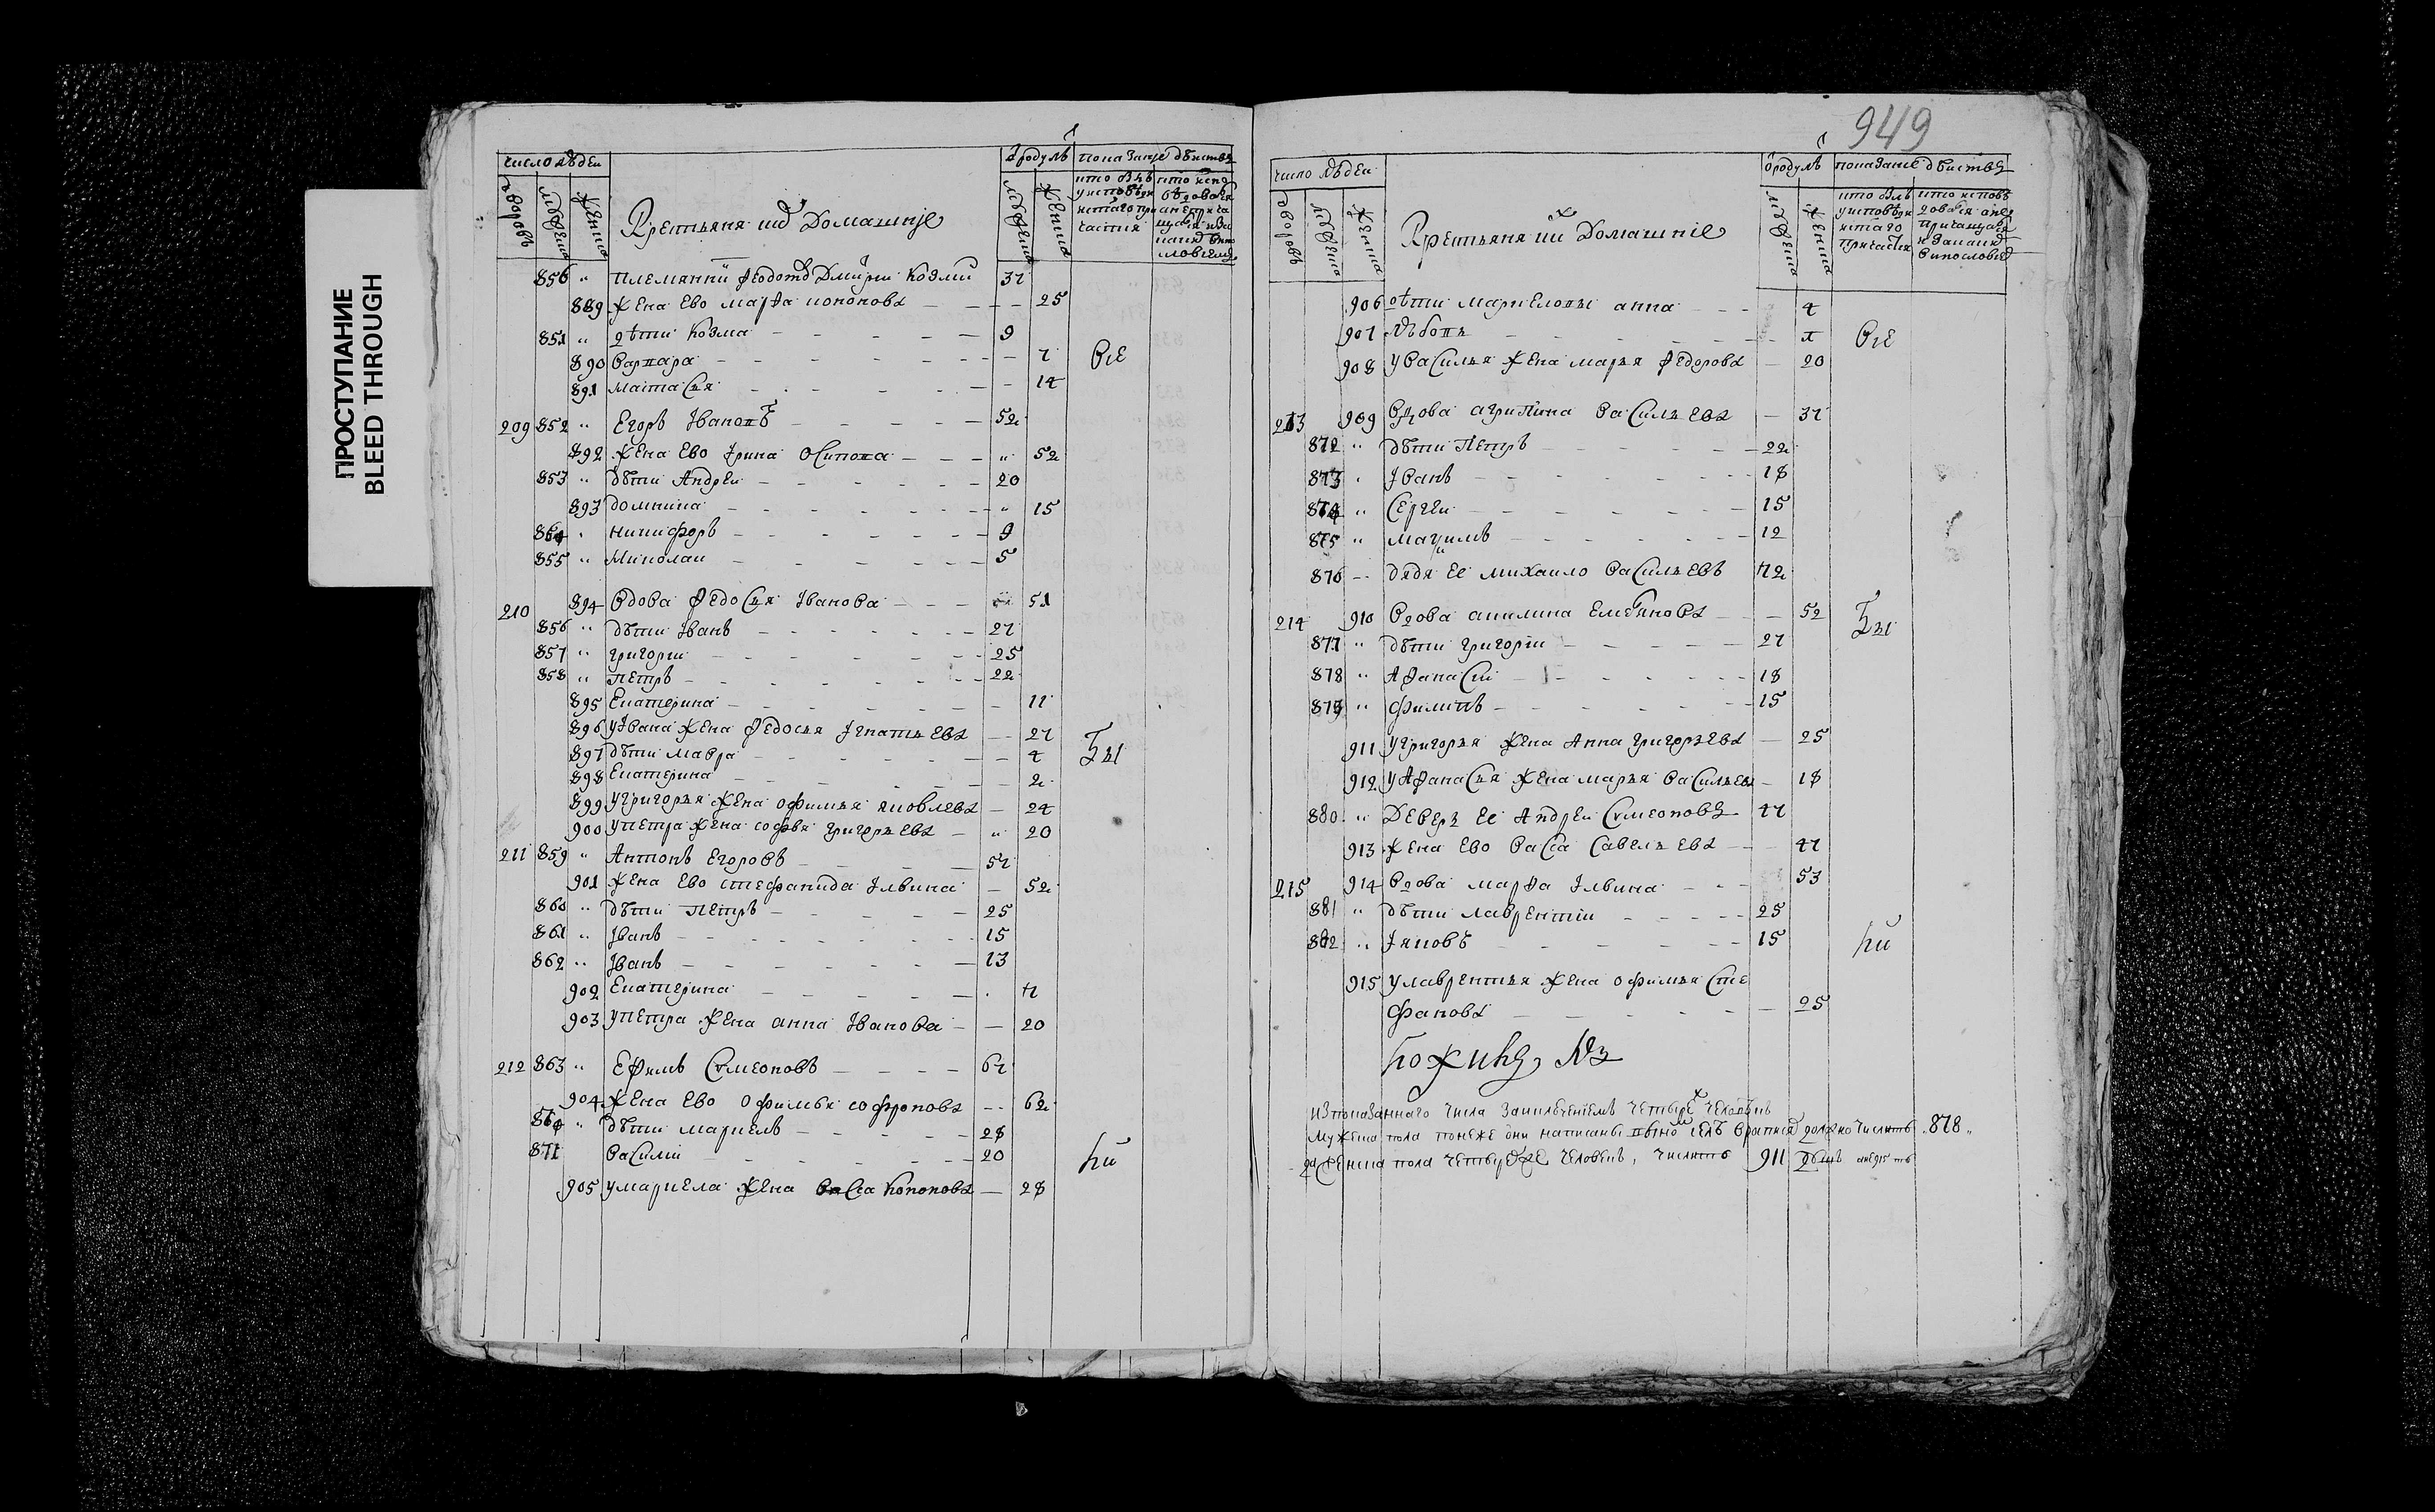 ПРОСТУПАНИЕ
BLEED THROUGH
число людеи
дворовъ
мужеска
женска
Крестьяня и ихъ домашние
показание действа
856 " племянникъ Федотъ Дмитриевъ 37
889 жена ево марфа кононова 25
851 " дети козма 9
890 варвара 7
891 настасья 14
209 852 " Егоръ Iвановъ 52
892 жена ево Iрина осипова " 52
853 " дети Андреи 20
893 домникиа " 15
864 " никифоръ 9
855 " николаи 5
210 894 вдова федосья Iванова 51
856 " дети Iванъ 27
857 " григореи 25
858 " петръ 22
895 Екатерина 11
896 у Iвана жена федосья Iгнатьева 27
897 дети мавра 4
898 Екатерина 2
899 у григорья жена офимья яковлева 24
900 у петра жена софья григорьева " 20
211 859 " Антонъ Егоровъ 57
901 жена ево стефанида Iльина 52
860 " дети петръ 25
861 " Iванъ 15
862 " Iванъ 13
902 Екатерина
903 у петра жена анна Iванова 20
212 863 " Ефимъ Сvмеоновъ 67
904 жена ево офимья софронова 62
864 " дети маркелъ 28
871 василии 20
905 у маркела жена васса кононова 28
все
бы
ли
949
число людеи
дворовъ
мужеска
женска
Крестьяня и ихъ домашние
показание действа
906 дети маркеловы анна 4
907 любовь
908 у василья жена марья федорова 20
все
213 909 вдова агрипина васильева 37
872 " дети петръ 22
873 " Iванъ 18
874 " сергеи 15
875 " максимъ 12
876 дядя ее михаило васильевъ 72
214 910 вдова акилина емельянова 52
бы
877 " дети григореи 27
878 " Афанасии 18
879 " филипъ 15
911 у григорья жена Анна григорьева 25
912 у Афанасья жена марья васильева 18
880 " деверь ее Андреи Сvмеоновъ 47
913 жена ево васса савельева 47
215 914 вдова марфа Iльина 53
881 " дети лаврентии 25
882 " Iяковъ 15
ли
915 у лаврентья жена офимья сте
фанова 25
из показаннаго числа за исключениемъ четырехъ человекъ
мужеска пола понеже они написаны должно числить 878
женска пола четырехъ человекъ, числить 911